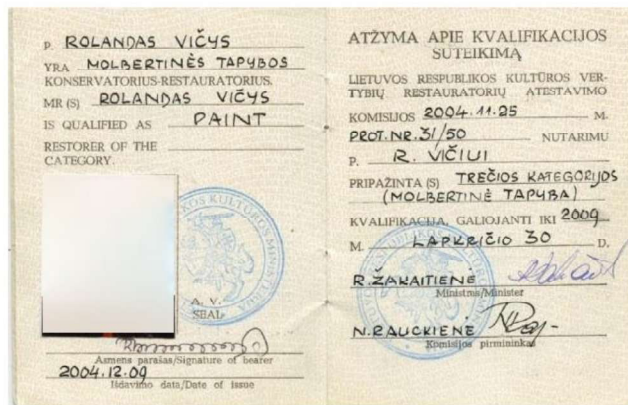 P. ROLANDAS VIČYS
YRA MOLBERTINĖS TAPYBOS
KONSERVATORIUS-RESTAURATORIUS.
MR (S) ROLANDAS VIČYS
IS QUALIFIED AS PAINT
RESTORER OF THE
CATEGORY.
A. V.
SEAL
Asmens parašas/Signature of bearer
2004.12.09
Išdavimo data/Date of issue
ATŽYMA APIE KVALIFIKACIJOS
SUTEIKIMĄ
LIETUVOS RESPUBLIKOS KULTŪROS VER-
TYBIŲ RESTAURATORIŲ ATESTAVIMO
KOMISIJOS 2004.11.25 M.
PROT.NR.31/50 NUTARIMU
P. R. VIČIUI
PRIPAŽINTA (S) TREČIOS KATEGORIJOS
(MOLBERTINĖ TAPYBA)
KVALIFIKACIJA, GALIOJANTI IKI 2009
M. LAPKRIČIO 30 D.
R. ŽAKAITIENĖ
Ministras/Minister
N. RAUCKIENĖ
Komisijos pirmininkas